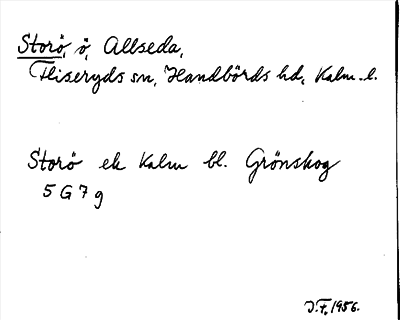 Storö, ö, Allseda,
Fliseryds sn, Handbörds hd, Kalm. l.
Storö ek Kalm bl. Grönskog
5 G 7 g
J.F. 1956.